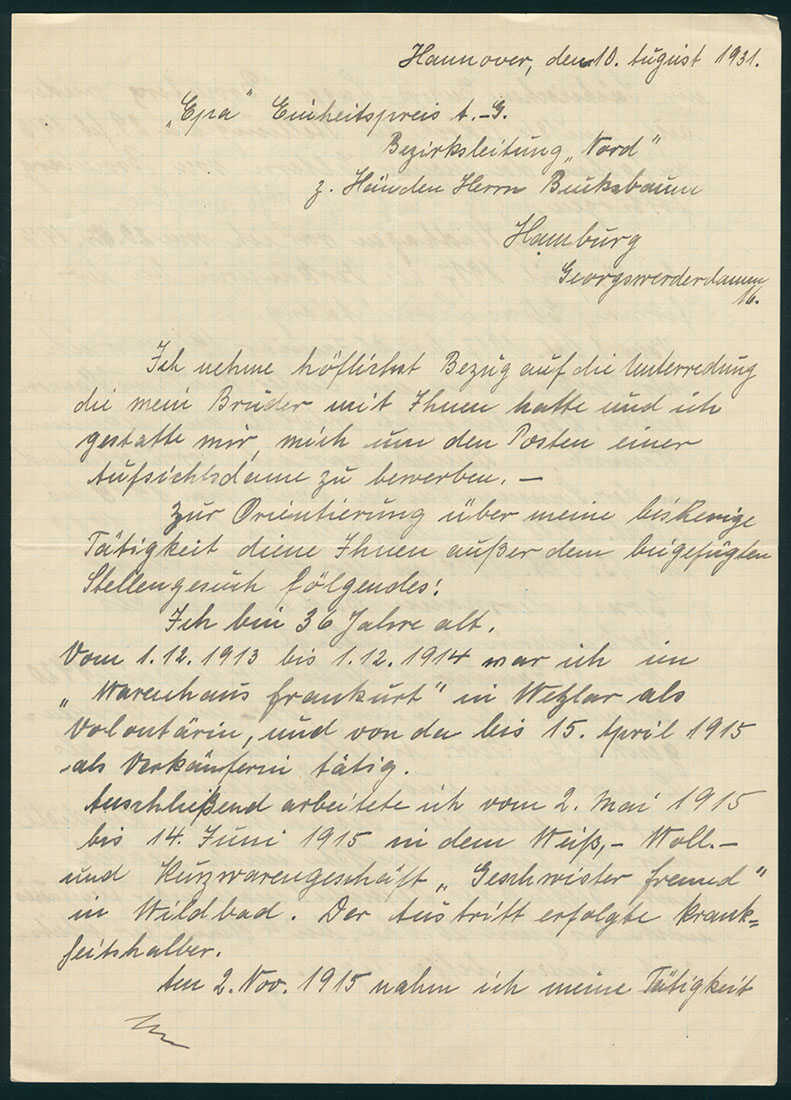 Hannover, den 10. August 1931.
"Epa" Einheitspreis A.-G.
Bezirksleitung "Nord"
z. Händen Herrn Buksbaum
Hamburg
Georgswerderdamm
16.
Ich nehme höflichst Bezug auf die Unterredung
die mein Bruder mit Ihnen hatte und ich
gestatte mir, mich um den Posten einer
Aufsichtsdame zu bewerben. —
Zur Orientierung über meine bisherige
Tätigkeit diene Ihnen außer dem beigefügten
Stellengesuch folgendes:
Ich bin 36 Jahre alt.
Vom 1.12.1913 bis 1.12.1914 war ich im
"Warenhaus Frankfurt" in Wetzlar als
Volontärin, und von da bis 15. April 1915
als Verkäuferin tätig.
Anschließend arbeitete ich vom 2. Mai 1915
bis 14. Juni 1915 in dem Weiß,- Woll.-
und Kurzwarengeschäft "Geschwister Freund"
in Wildbad. Der Austritt erfolgte krank=
heitshalber.
Am 2. Nov. 1915 nahm ich meine Tätigkeit